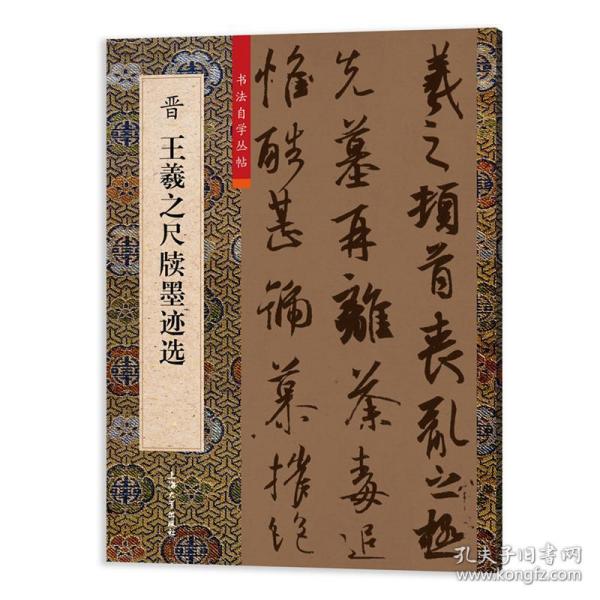 晋 王羲之尺牍墨迹选
上海大学出版社
书法自学丛帖
羲之顿首丧乱之极
先墓再離荼毒追
惟酷甚號慕摧絶
孔夫子旧书网
www.kongfz.com